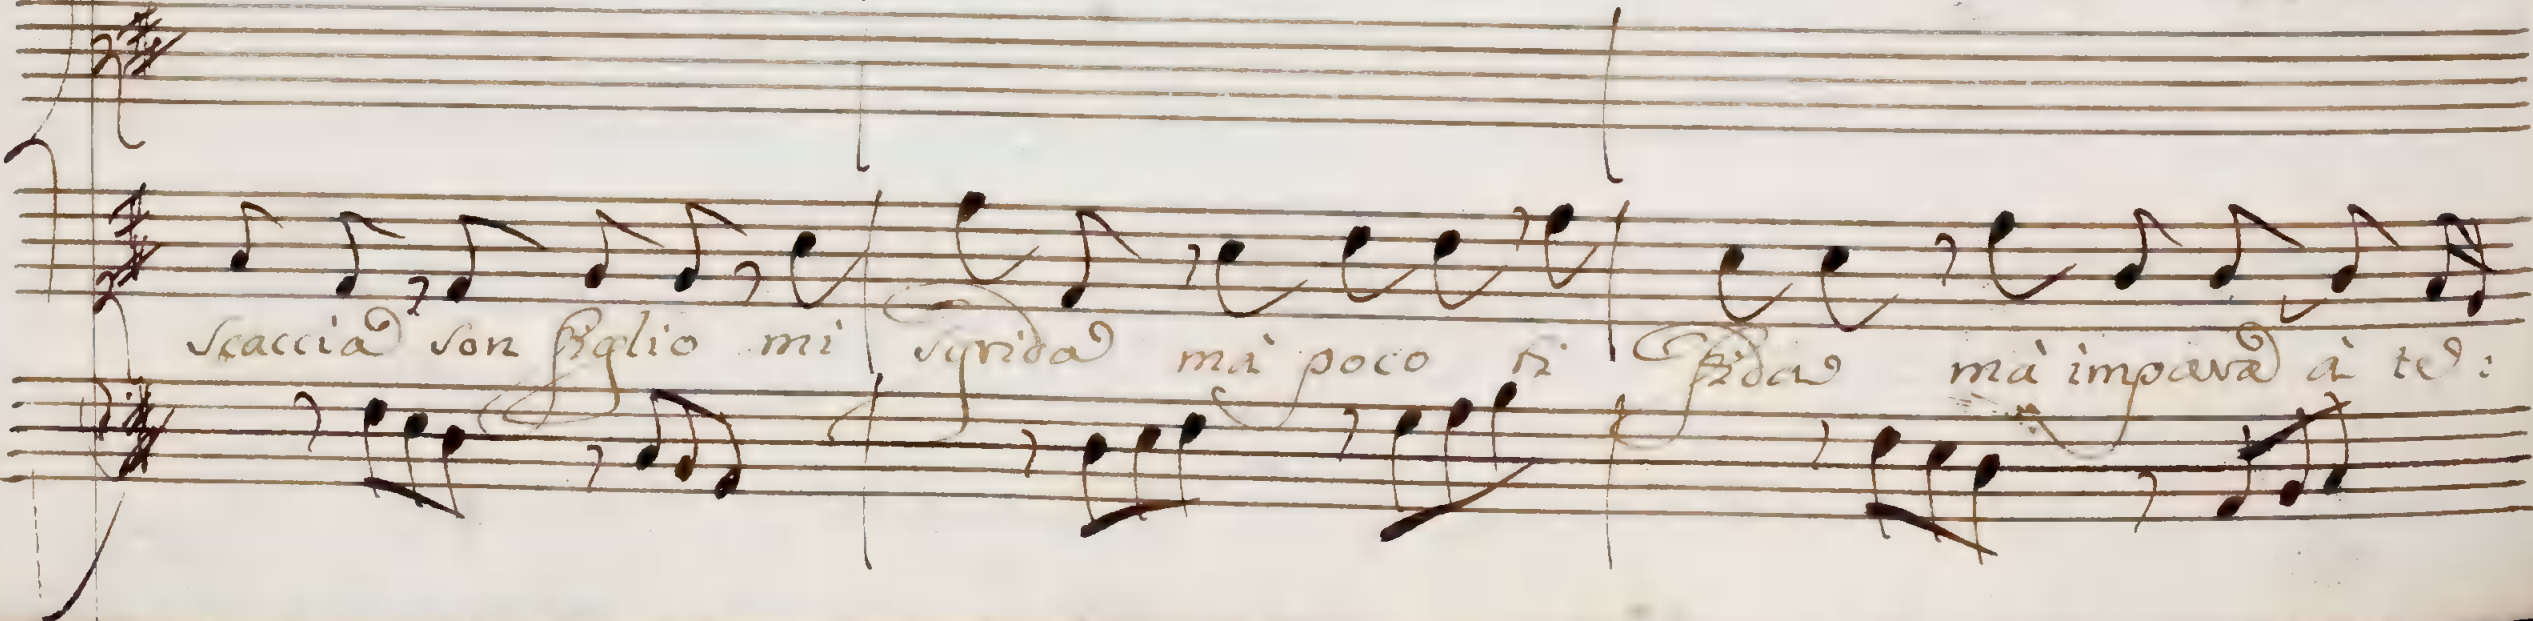 scaccia son figlio mi sgrida mà poco ti fida mà impara à te: